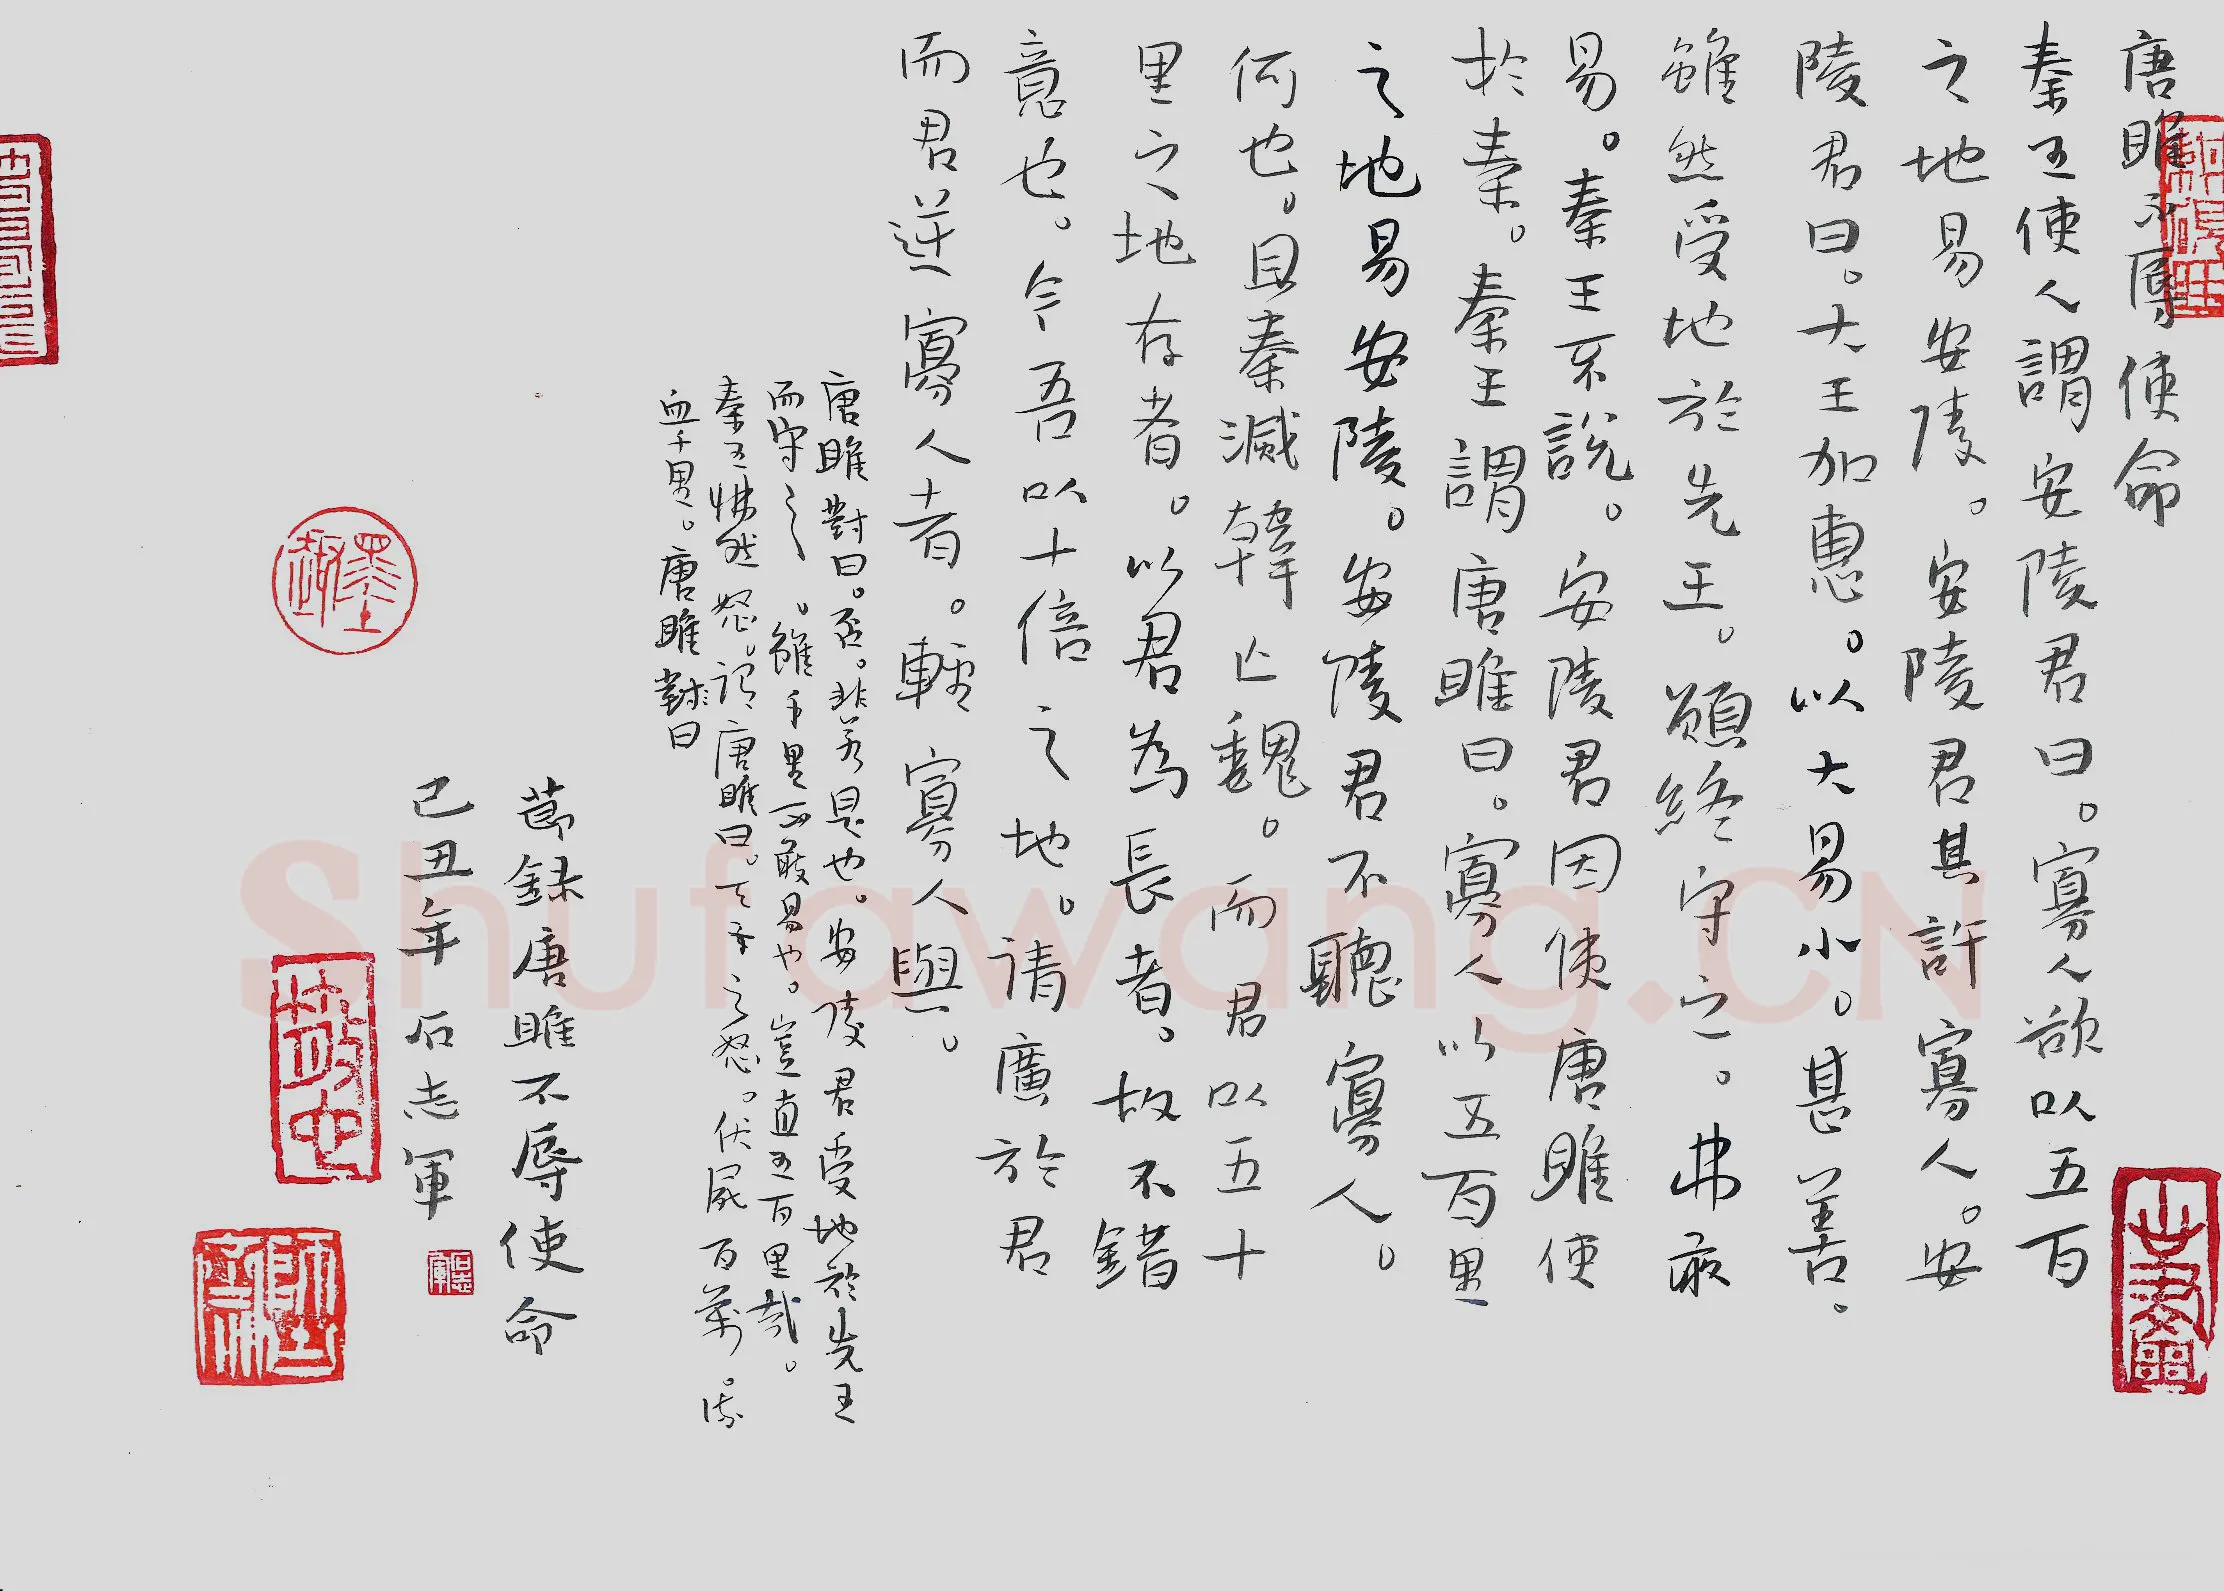 唐雎不辱使命
秦王使人謂安陵君曰。寡人欲以五百
之地易安陵。安陵君其許寡人。安
陵君曰。大王加惠。以大易小。甚善。
雖然受地於先王。願終守之。弗敢
易。秦王不說。安陵君因使唐雎使
於秦。秦王謂唐雎曰。寡人以五百里
之地易安陵。安陵君不聽寡人。
何也。且秦滅韓亡魏。而君以五十
里之地存者。以君為長者。故不錯
意也。今吾以十倍之地。请廣於君
而君逆寡人者。輕寡人與。
唐雎對曰。否。非若是也。安陵君受地於先王
而守之。雖千里不敢易也。豈直五百里哉。
秦王怫然怒。謂唐雎曰。天子之怒。伏屍百萬。流
血千里。唐雎對曰
節録唐雎不辱使命
己丑年石志軍
石志軍
Shufawang.CN